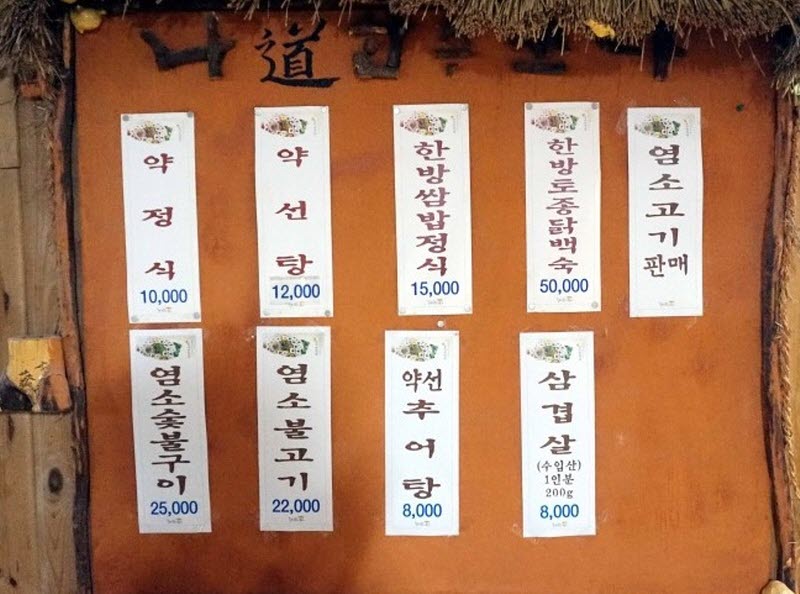 나 道
약정식
10,000
약선탕
12,000
한방쌈밥정식
15,000
한방토종닭백숙
50,000
염소고기
판매
염소숯불구이
25,000
염소불고기
22,000
약선
추어탕
8,000
삼겹살
(수입산)
1인분
200g
8,000